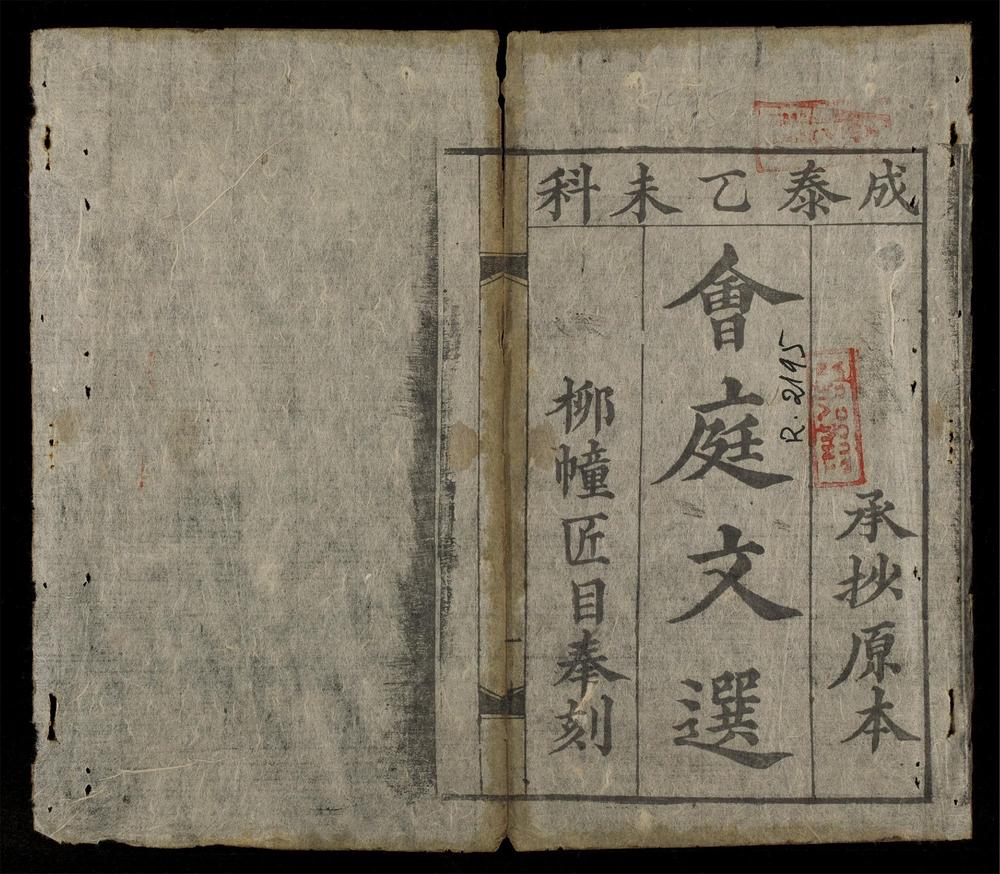 成泰乙未科
承抄原本
會庭文選
柳幢匠目奉刻
R. 2195